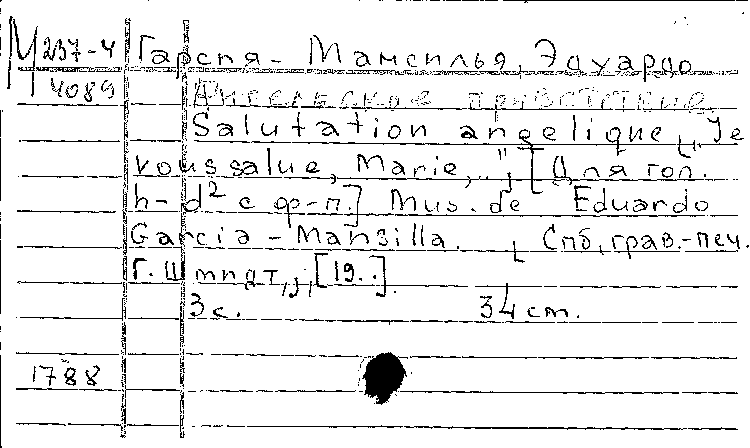 М 237-4 Гарсия-Мансилья, Эдуардо
4089 Ангельское приветствие.
Salutation angelique, „Je
vous salue, Marie,.."; [Для гол.
h-d² с ф-п.] Mus. de Eduardo
Garcia-Mansilla. Спб, грав.-печ.
Г. Шмидт, [19..].
3 с. 34 cm.
1788